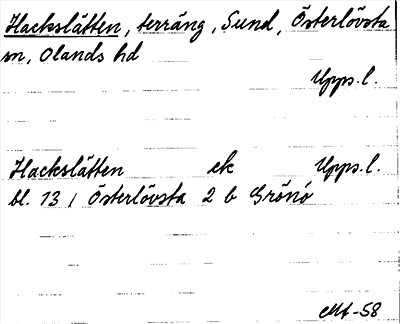 Hackslätten, terräng, Sund, Österlövsta
sn, Olands hd
Upps.l.
Hackslätten ek Upps.l.
bl. 13 i Österlövsta 2 b Grönö
-58